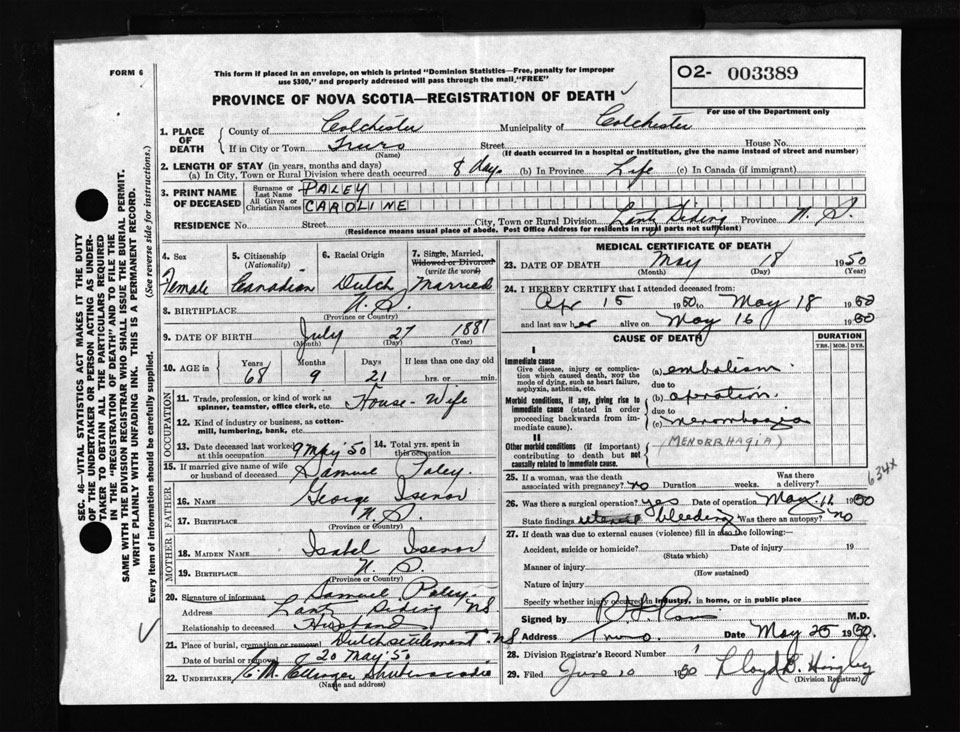 FORM 6
This form if placed in an envelope, on which is printed "Dominion Statistics—Free, penalty for improper
use $300," and properly addressed will pass through the mail, "FREE"
O2- 003389
For use of the Department only
PROVINCE OF NOVA SCOTIA—REGISTRATION OF DEATH
1. PLACE OF DEATH
County of Colchester Municipality of Colchester
If in City or Town Truro Street House No.
(Name) (If death occurred in a hospital or institution, give the name instead of street and number)
2. LENGTH OF STAY (in years, months and days)
(a) In City, Town or Rural Division where death occurred 8 day. (b) In Province Life (c) In Canada (if immigrant)
3. PRINT NAME OF DECEASED
Surname or Last Name PALEY
All Given or Christian Names CAROLINE
RESIDENCE No. Street City, Town or Rural Division Lantz Siding Province N. S.
(Residence means usual place of abode. Post Office Address for residents in rural parts not sufficient)
4. Sex Female
5. Citizenship (Nationality) Canadian
6. Racial Origin Dutch
7. Single, Married, Widowed or Divorced (write the word) Married
8. BIRTHPLACE N. S.
(Province or Country)
9. DATE OF BIRTH July 27 1881
(Month) (Day) (Year)
10. AGE in Years 68 Months 9 Days 21 If less than one day old
hrs. or min.
OCCUPATION
11. Trade, profession, or kind of work as spinner, teamster, office clerk, etc. House-Wife
12. Kind of industry or business, as cotton-mill, lumbering, bank, etc.
13. Date deceased last worked at this occupation 9 May '50 14. Total yrs. spent in this occupation
15. If married give name of wife or husband of deceased Samuel Paley.
FATHER
16. NAME George Isenor
17. BIRTHPLACE N. S.
(Province or Country)
MOTHER
18. MAIDEN NAME Isabel Isenor
19. BIRTHPLACE N. S.
(Province or Country)
20. Signature of informant Samuel Paley.
Address Lantz Siding NS
Relationship to deceased Husband
21. Place of burial, cremation or removal Dutch settlement. NS
Date of burial or removal 20 May '50
22. UNDERTAKER Shubenacadie
(Name and address)
MEDICAL CERTIFICATE OF DEATH
23. DATE OF DEATH May 18 1950
(Month) (Day) (Year)
24. I HEREBY CERTIFY that I attended deceased from:
Apr 15 1950 to May 18 1950
and last saw her alive on May 16 1950
CAUSE OF DEATH
DURATION
YRS. MOS. DYS.
I
Immediate cause
Give disease, injury or complication which caused death, not the mode of dying, such as heart failure, asphyxia, asthenia, etc.
(a) embolism
due to
Morbid conditions, if any, giving rise to immediate cause (stated in order proceeding backwards from immediate cause).
(b) operation
due to
(c) menorrhagia
(MENORRHAGIA)
II
Other morbid conditions (if important) contributing to death but not causally related to immediate cause.
634X
25. If a woman, was the death associated with pregnancy? no Duration weeks. Was there a delivery?
26. Was there a surgical operation? yes Date of operation May 1950
State findings uterus bleeding Was there an autopsy? no
27. If death was due to external causes (violence) fill in also the following:
Accident, suicide or homicide? Date of injury 19
(State which)
Manner of injury
(How sustained)
Nature of injury
Specify whether injury occurred in industry, in home, or in public place
Signed by M.D.
Address Truro. Date May 25 1950.
28. Division Registrar's Record Number
29. Filed June 10 1950 Lloyd B.
(Division Registrar)
SEC. 46—VITAL STATISTICS ACT MAKES IT THE DUTY
OF THE UNDERTAKER OR PERSON ACTING AS UNDERTAKER TO OBTAIN ALL THE PARTICULARS REQUIRED
IN THE "REGISTRATION OF DEATH" AND TO FILE THE
SAME WITH THE DIVISION REGISTRAR WHO SHALL ISSUE THE BURIAL PERMIT.
WRITE PLAINLY WITH UNFADING INK. THIS IS A PERMANENT RECORD.
Every item of information should be carefully supplied. (See reverse side for instructions.)